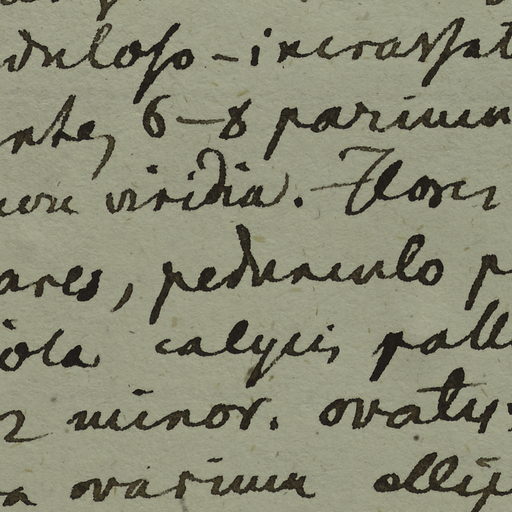 duloso-incrassat
nte, 6-8 parium
viridia. Flores
ares, pedunculo p
iola calycis pall
minor. ovatus
a ovarium ellip